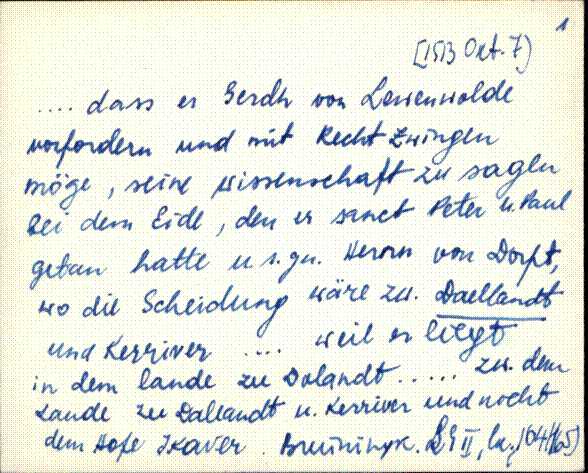 1
[1513 Okt. 7)
.... dass er Gerdh von Lewenwolde
vorfordern und mit Recht zwingen
möge, seine wissenschaft zu sagen
bei dem Eide, den er sanct Peter u. Paul
getan hatte u s. gn. Herrn von Dorpt,
wo die Scheidung wäre zw. Daellandt
und Kerriver .... weil er liegt
in dem lande zu Dolandt ..... zw. dem
Lande zu Dallandt u. Kerriver und nocht
dem Hofe Ikaver. Bruiningk. LG II,